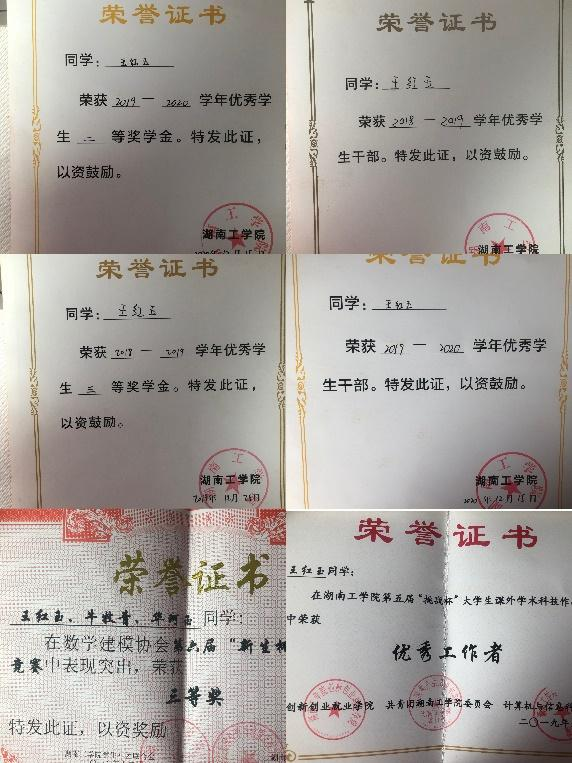 荣誉证书
同学：王红玉
荣获 2019 — 2020 学年优秀学
生 二 等奖学金。特发此证，
以资鼓励。
湖南工学院
荣誉证书
同学：王红玉
荣获 2018 — 2019 学年优秀学
生干部。特发此证，以资鼓励。
湖南工学院
荣誉证书
同学：王红玉
荣获 2018 — 2019 学年优秀学
生 三 等奖学金。特发此证，
以资鼓励。
湖南工学院
荣誉证书
同学：王红玉
荣获 2019 — 2020 学年优秀学
生干部。特发此证，以资鼓励。
湖南工学院
2020 年 12 月 15 日
荣誉证书
王红玉、牛牧青、 同学：
在数学建模协会第六届“新生杯
竞赛中表现突出，荣获
三等奖
特发此证，以资奖励
荣誉证书
王红玉同学：
在湖南工学院第五届“挑战杯”大学生课外学术科技作
中荣获
优秀工作者
创新创业就业学院 共青团湖南工学院委员会 计算机与信息科
二〇一九年